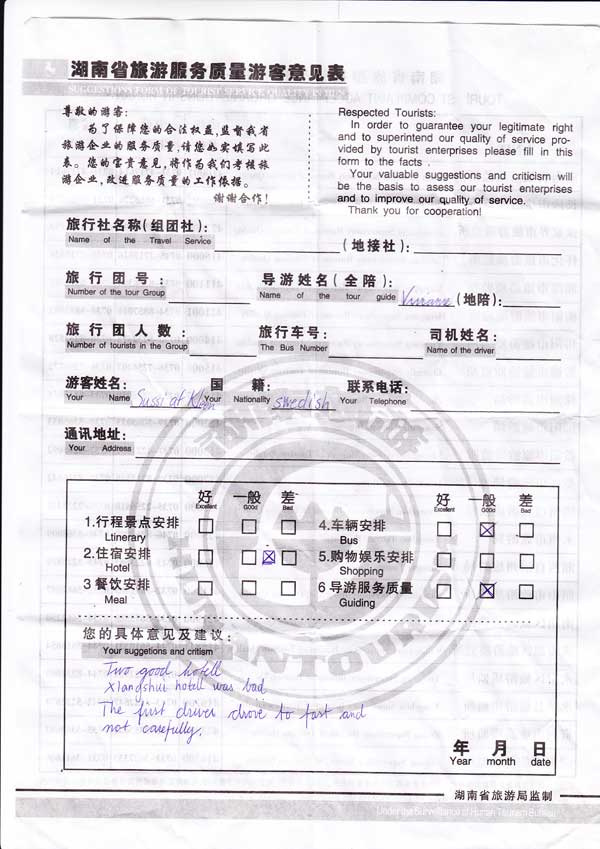 湖南省旅游服务质量游客意见表
SUGGESTIONS FORM OF TOURIST SERVICE QUALITY IN HUNAN
尊敬的游客:
为了保障您的合法权益,监督我省
旅游企业的服务质量,请您如实填写此
表。您的宝贵意见,将作为我们考核旅
游企业,改进服务质量的工作依据。
谢谢合作!
Respected Tourists:
In order to guarantee your legitimate right
and to superintend our quality of service pro-
vided by tourist enterprises please fill in this
form to the facts .
Your valuable suggestions and criticism will
be the basis to asess our tourist enterprises
and to improve our quality of service.
Thank you for cooperation!
旅行社名称(组团社): (地接社):
Name of the Travel Service
旅行团号: 导游姓名(全陪) (地陪):
Number of the tour Group Name of the tour guide
旅行团人数: 旅行车号: 司机姓名:
Number of tourists in the Group The Bus Number Name of the driver
游客姓名: 国籍: 联系电话:
Your Name Sussi af Kleen Your Nationality swedish Your Telephone
通讯地址:
Your Address
好 一般 差 好 一般 差
Excellent Good Bad Excellent Good Bad
1.行程景点安排 4.车辆安排
Ltinerary Bus
2.住宿安排 5.购物娱乐安排
Hotel Shopping
3 餐饮安排 6 导游服务质量
Meal Guiding
HUNAN TOURISM
您的具体意见及建议:
Your suggetions and critism
Two good hotell
Xiangshui hotell was bad
The first driver drove to fast and
not carefully.
年 月 日
Year month date
湖南省旅游局监制
Under the Surveillance of Hunan Tourism Bureau